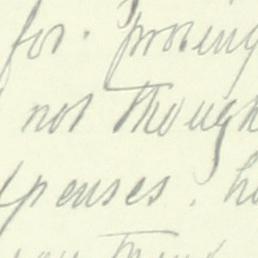 for. Proving
not though
penses. h